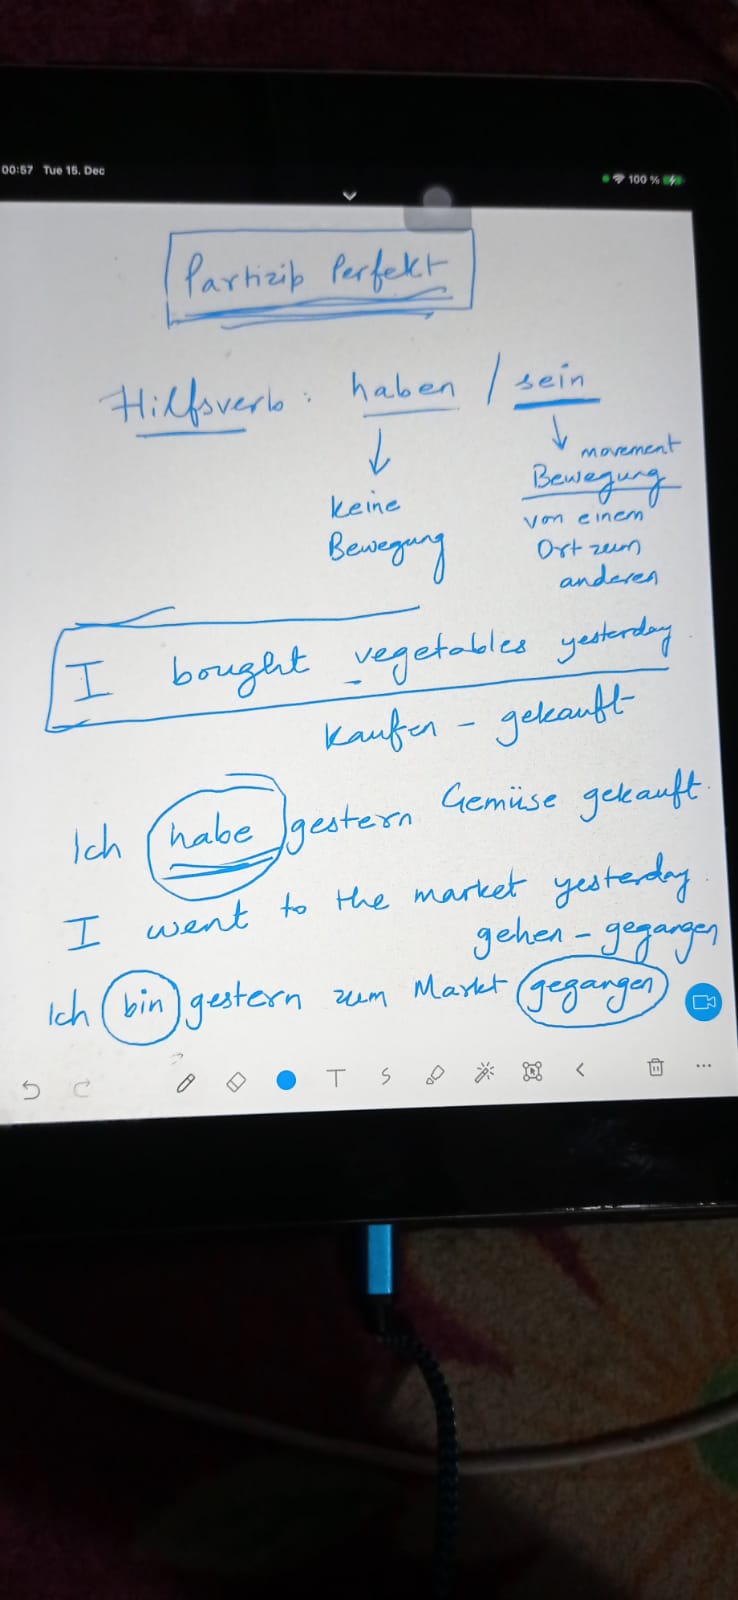 00:57 Tue 15. Dec
100 %
Partizip Perfekt
Hilfsverb : haben / sein
movement
keine
Bewegung
Bewegung
von einem
Ort zum
anderen
I bought vegetables yesterday.
Kaufen - gekauft
Ich habe gestern Gemüse gekauft.
I went to the market yesterday.
gehen - gegangen
Ich bin gestern zum Markt gegangen
T S